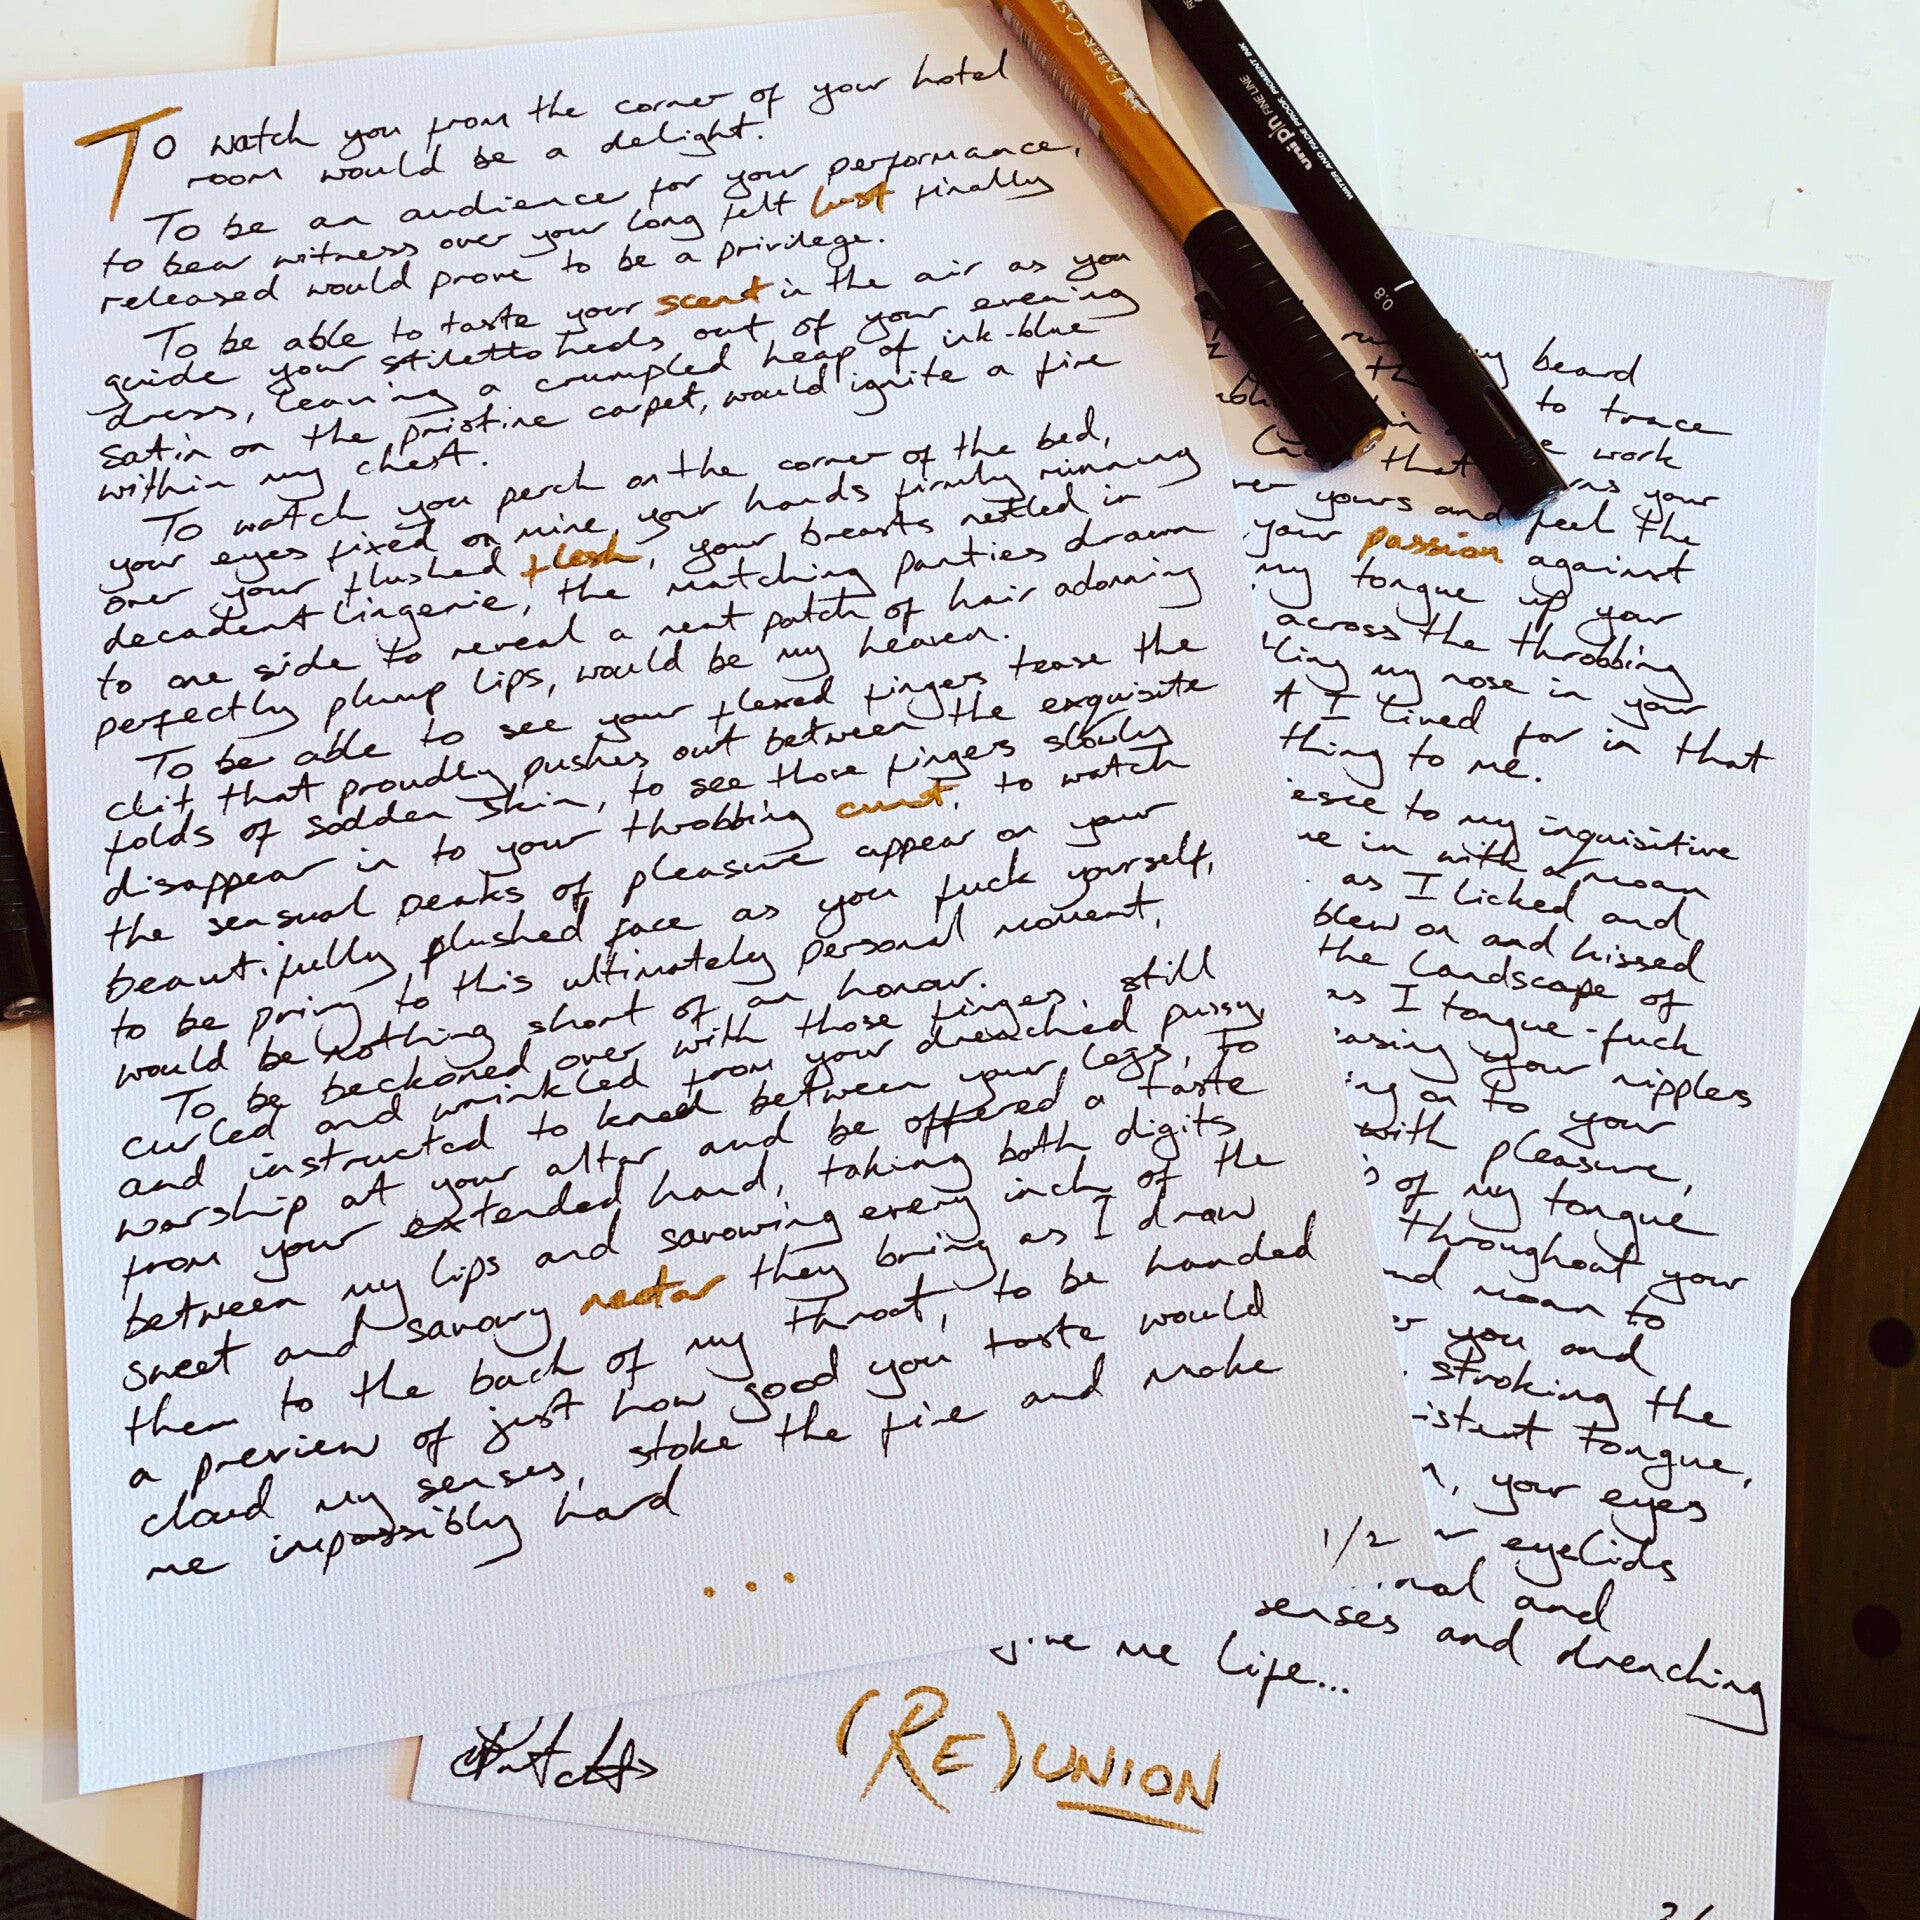 To watch you from the corner of your hotel
room would be a delight.
To be an audience for your performance,
to bear witness over your long felt lust finally
released would prove to be a privilege.
To be able to taste your scent in the air as you
guide your stiletto heels out of your evening
dress, leaving a crumpled heap of ink-blue
satin on the pristine carpet, would ignite a fire
within my chest.
To watch you perch on the corner of the bed,
your eyes fixed on mine, your hands firmly running
over your flushed flesh, your breasts nestled in
decadent lingerie, the matching panties drawn
to one side to reveal a neat patch of hair adorning
perfectly plump lips, would be my heaven.
To be able to see your flexed fingers tease the
clit that proudly pushes out between the exquisite
folds of sodden skin, to see those fingers slowly
disappear in to your throbbing cunt, to watch
the sensual peaks of pleasure appear on your
beautifully plushed face as you fuck yourself,
to be privy to this ultimately personal moment,
would be nothing short of an honour.
To be beckoned over with those fingers, still
curled and wrinkled from your drenched pussy,
and instructed to kneel between your legs, to
worship at your altar and be offered a taste
from your extended hand, taking both digits
between my lips and savouring every inch of the
sweet and savoury nectar they bring as I draw
them to the back of my throat, to be handed
a preview of just how good you taste would
cloud my senses, stoke the fire and make
me impossibly hard
...
1/2
FABER-CAST
uni pin FINE LINE
WATER AND FADE PROOF, PIGMENT INK
0.8
my beard
to trace
work
that your
yours and feel the
your passion against
my tongue up your
across the throbbing
my nose in your
I lived for in that
thing to me.
to my inquisitive
in with a moan
as I licked and
blew on and kissed
the landscape of
as I tongue-fuck
your nipples
on to your
with pleasure,
of my tongue
throughout your
moan to
you and
stroking the
tongue,
your eyes
eyelids
and
senses and drenching
me life...
(RE)UNION